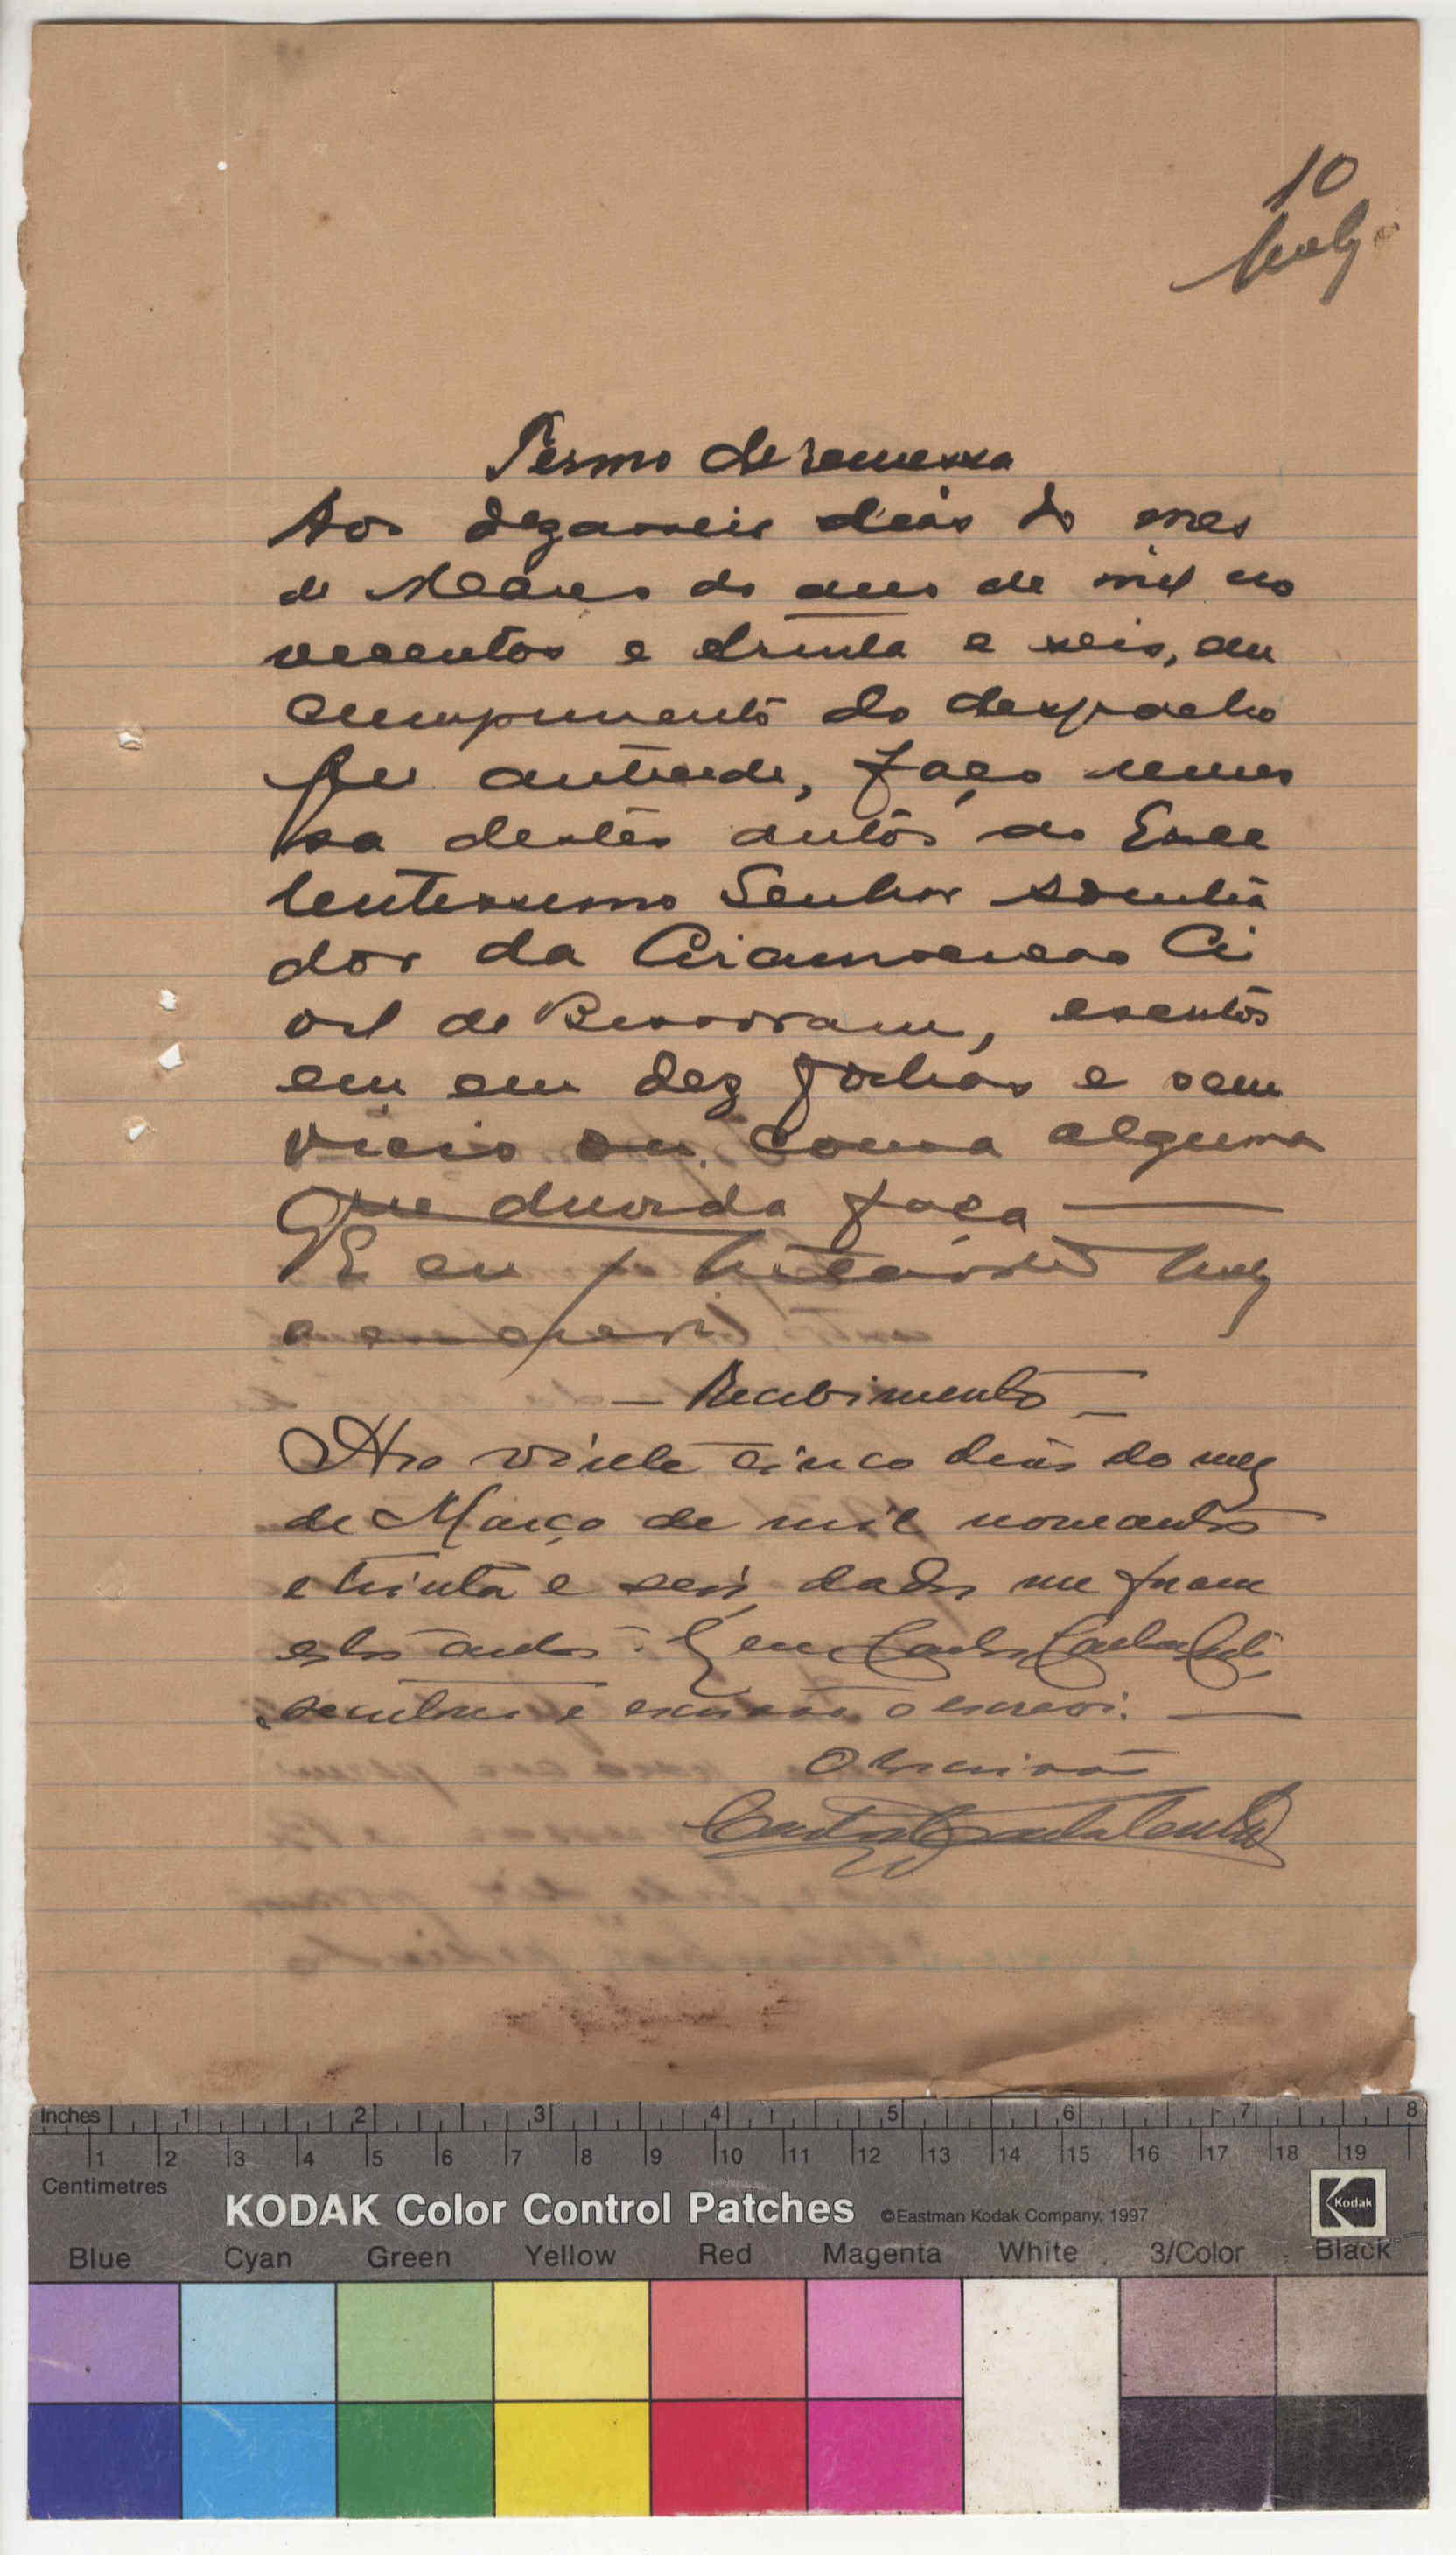 10
Termo de remessa
Aos dezasseis dias do mes
de Março do ano de mil no
vecentos e trinta e seis, em
cumprimento do despacho
antecede, faço remes
sa destes autos ao Exce
lentissimo Senhor Admin
dor da Circunscricao Ci
vil de Bissoram, escritos
em em dez folhas e sem
vicio ou cousa alguma
que duvida faça
E eu
o escrevi
— Recebimento —
Aos vinte cinco dias do mez
de Março de mil novecentos
e trinta e seis dados me foram
estes autos. E eu Carlos
secretario e escrivão o escrevi. —
O Escrivão
Inches 1 2 3 4 5 6 7 8
1 2 3 4 5 6 7 8 9 10 11 12 13 14 15 16 17 18 19
Centimetres
KODAK Color Control Patches ©Eastman Kodak Company, 1997 Kodak
Blue Cyan Green Yellow Red Magenta White 3/Color Black